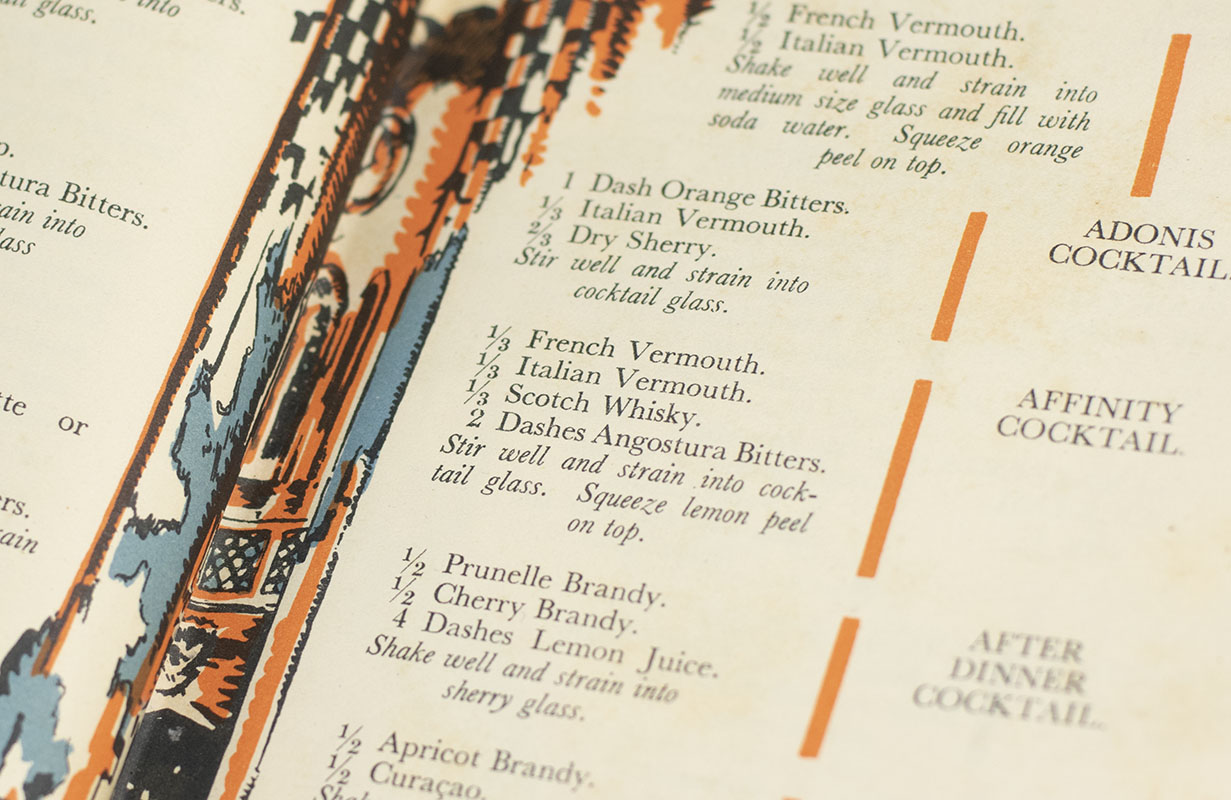 ail glass.
into
tura Bitters.
ain into
lass
tte or
ers.
ain
½ French Vermouth.
½ Italian Vermouth.
Shake well and strain into
medium size glass and fill with
soda water. Squeeze orange
peel on top.
1 Dash Orange Bitters.
⅓ Italian Vermouth.
⅔ Dry Sherry.
Stir well and strain into
cocktail glass.
ADONIS
COCKTAIL.
⅓ French Vermouth.
⅓ Italian Vermouth.
⅓ Scotch Whisky.
2 Dashes Angostura Bitters.
Stir well and strain into cock-
tail glass. Squeeze lemon peel
on top.
AFFINITY
COCKTAIL.
½ Prunelle Brandy.
½ Cherry Brandy.
4 Dashes Lemon Juice.
Shake well and strain into
sherry glass.
AFTER
DINNER
COCKTAIL.
½ Apricot Brandy.
½ Curaçao.
Sha